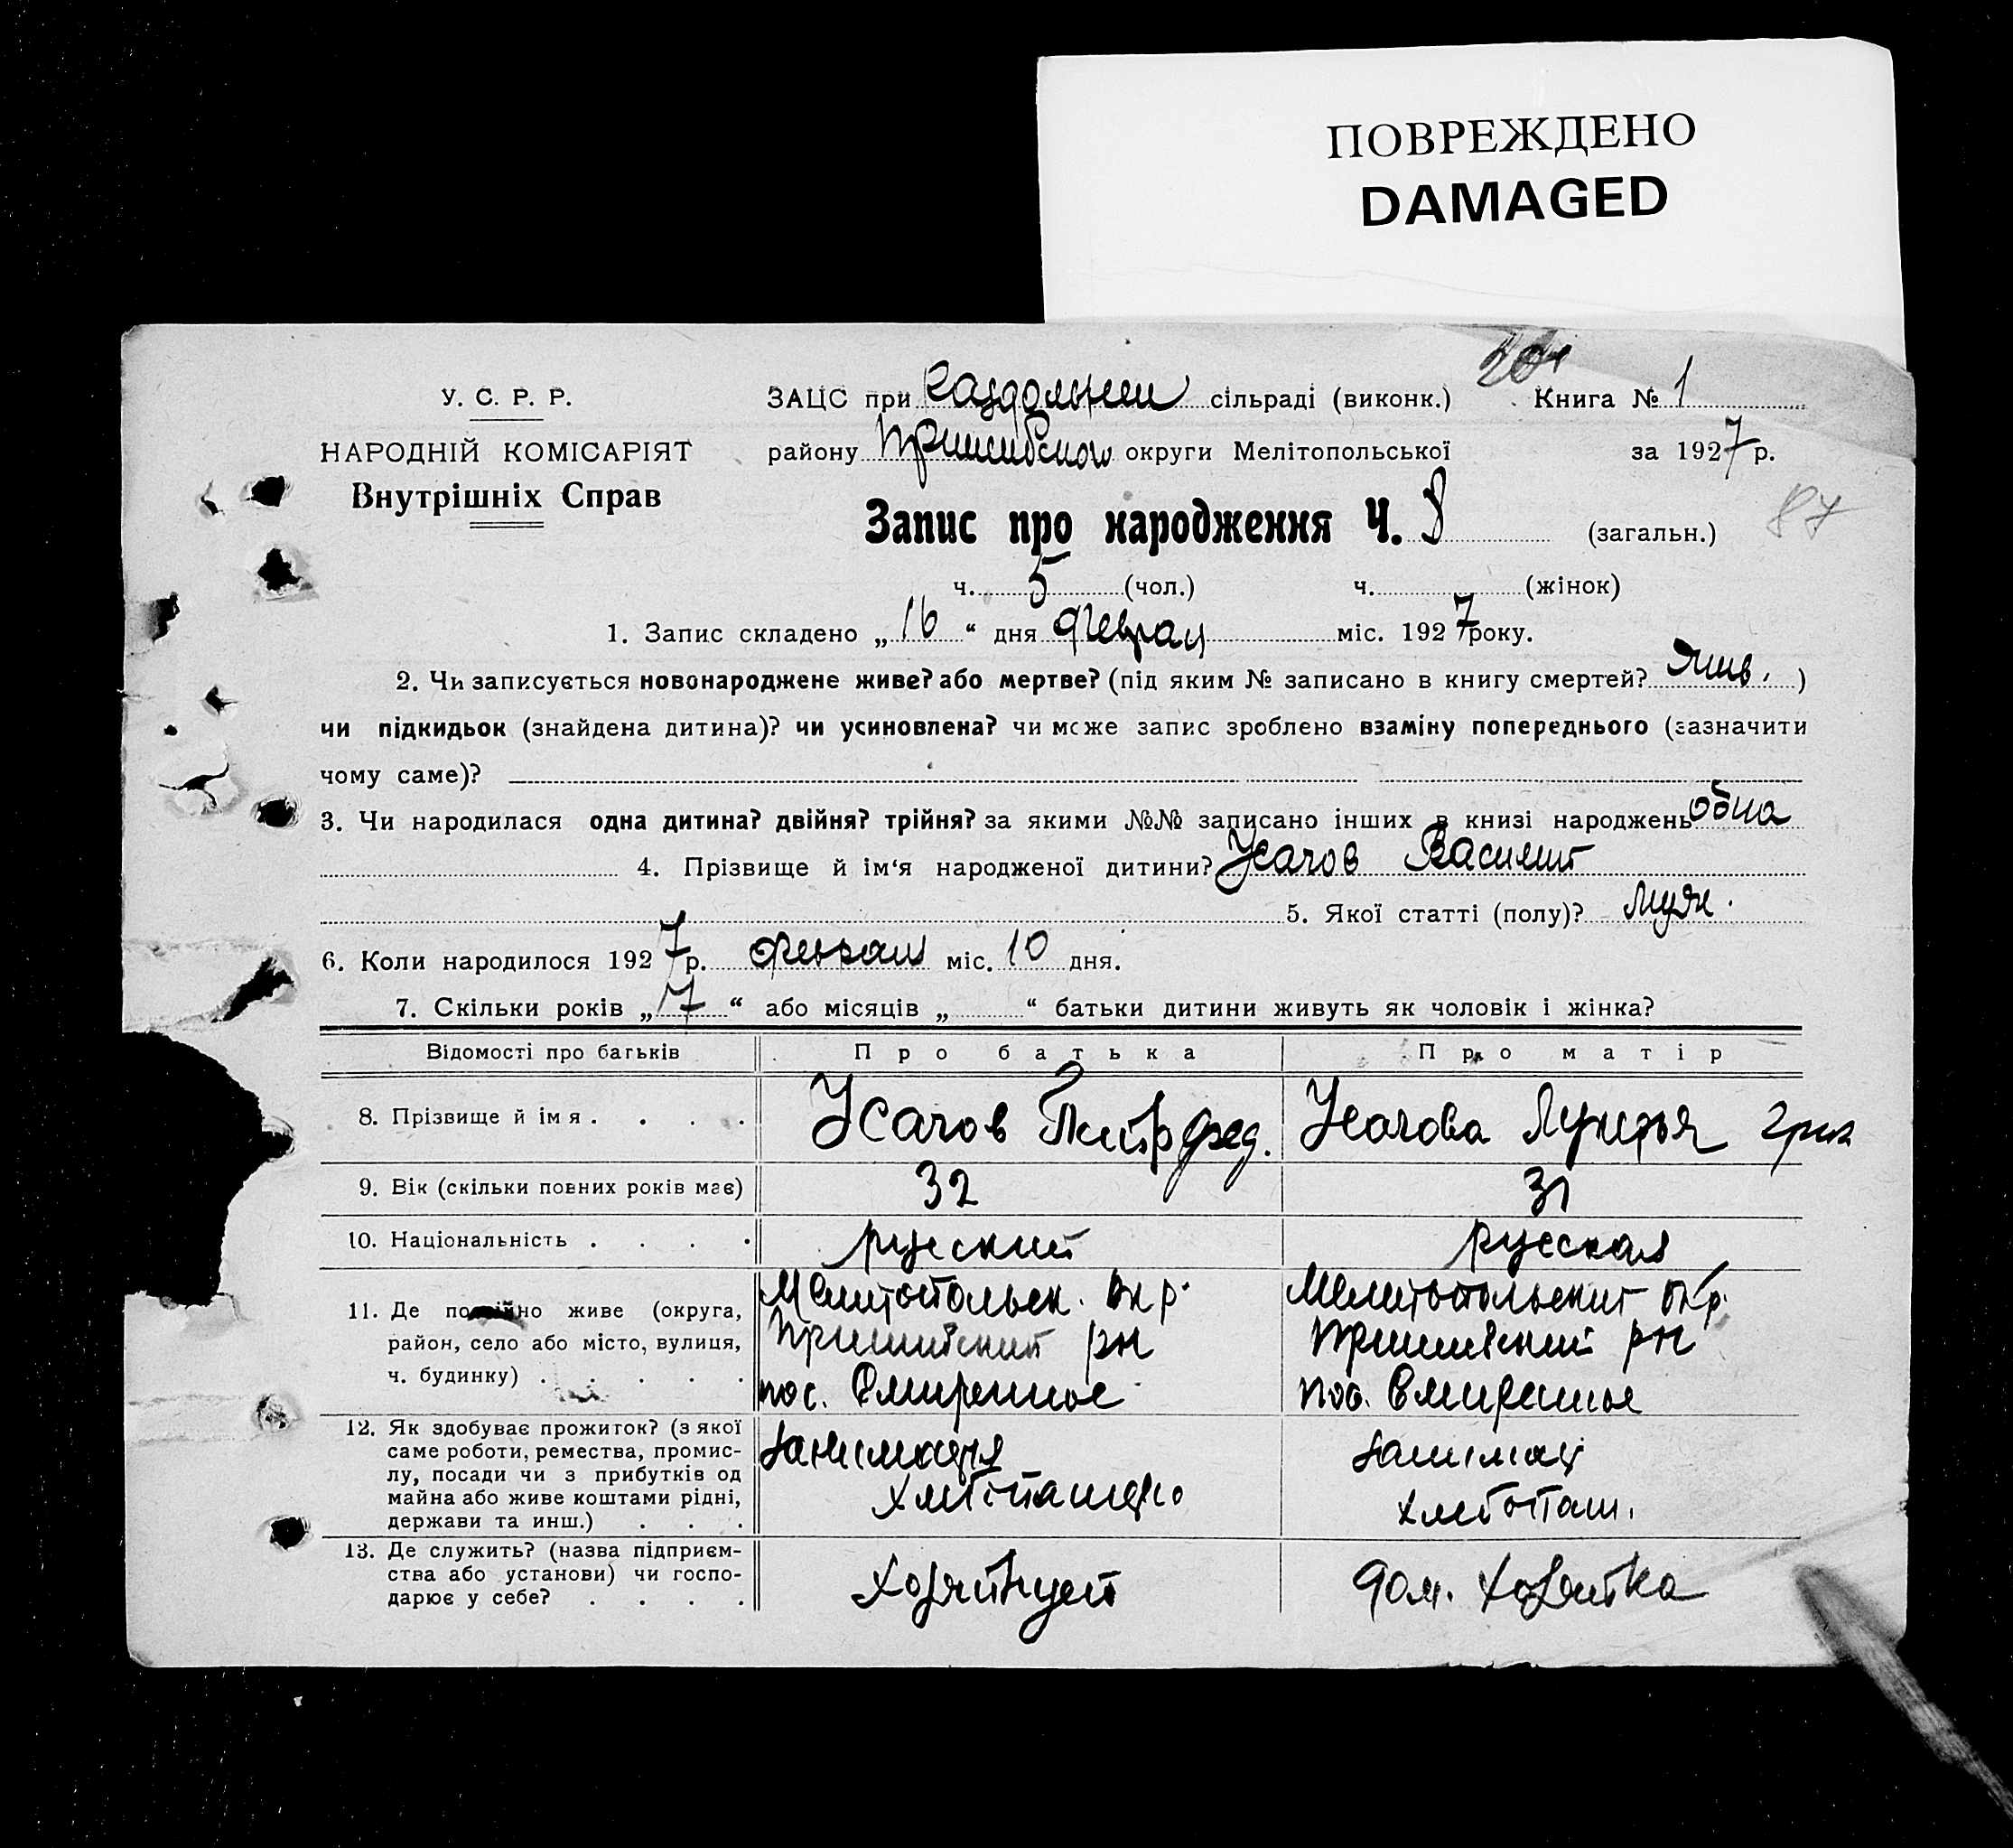 ПОВРЕЖДЕНО
DAMAGED
У. С. Р. Р.
НАРОДНІЙ КОМІСАРІЯТ
Внутрішніх Справ
ЗАЦС при Раздольнен сільраді (виконк.) Книга № 1
району Пришибского округи Мелітопольської за 1927 р.
Запис про народження Ч. 8 (загальн.) 87
ч. 5 (чол.) ч. (жінок)
1. Запис складено „16“ дня Феврал міс. 1927 року.
2. Чи записується новонароджене живе? або мертве? (під яким № записано в книгу смертей? жив. )
чи підкидьок (знайдена дитина)? чи усиновлена? чи може запис зроблено взаміну попереднього (зазначити
чому саме)?
3. Чи народилася одна дитина? двійня? трійня? за якими №№ записано інших в книзі народжень одна
4. Прізвище й ім‘я народженої дитини? Усачов Василий
5. Якої статті (полу)? муж.
6. Коли народилося 1927 р. февраля міс. 10 дня.
7. Скільки років „17“ або місяців „ “ батьки дитини живуть як чоловік і жінка?
Відомості про батьків Про батька Про матір
8. Прізвище й імя . . . . Усачов Пётр Фед. Усачова Лукерья
9. Вік (скільки повних років має) 32 31
10. Національність . . . . русский русская
11. Де постійно живе (округа, Мелитопольск. окр. Мелитопольский окр.
район, село або місто, вулиця, Пришибский рн Пришибский рн
ч. будинку) . . . . . пос. Смиренное пос. Смиренное
12. Як здобуває прожиток? (з якої
саме роботи, ремества, промис-
лу, посади чи з прибутків од
майна або живе коштами рідні,
держави та инш.) . . .
занимаця
хлібопашес
хлебопаш.
13. Де служить? (назва підприєм-
ства або установи) чи госпо-
дарює у себе? . . . .
хозяйнует дом. хозяйка